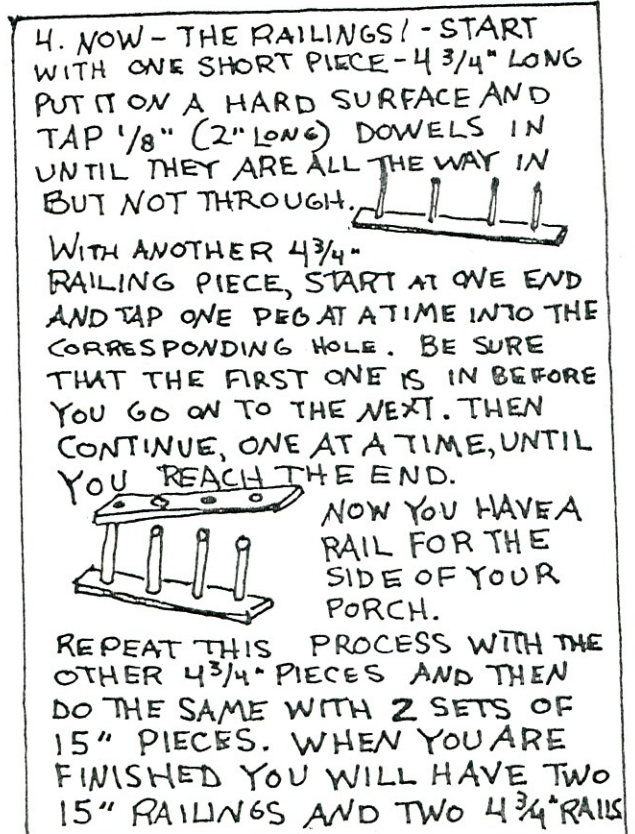 4. NOW - THE RAILINGS! - START
WITH ONE SHORT PIECE - 4 3/4" LONG
PUT IT ON A HARD SURFACE AND
TAP 1/8" (2" LONG) DOWELS IN
UNTIL THEY ARE ALL THE WAY IN
BUT NOT THROUGH.
WITH ANOTHER 4 3/4"
RAILING PIECE, START AT ONE END
AND TAP ONE PEG AT A TIME INTO THE
CORRESPONDING HOLE. BE SURE
THAT THE FIRST ONE IS IN BEFORE
YOU GO ON TO THE NEXT. THEN
CONTINUE, ONE AT A TIME, UNTIL
YOU REACH THE END.
NOW YOU HAVE A
RAIL FOR THE
SIDE OF YOUR
PORCH.
REPEAT THIS PROCESS WITH THE
OTHER 4 3/4" PIECES AND THEN
DO THE SAME WITH 2 SETS OF
15" PIECES. WHEN YOU ARE
FINISHED YOU WILL HAVE TWO
15" RAILINGS AND TWO 4 3/4" RAILS